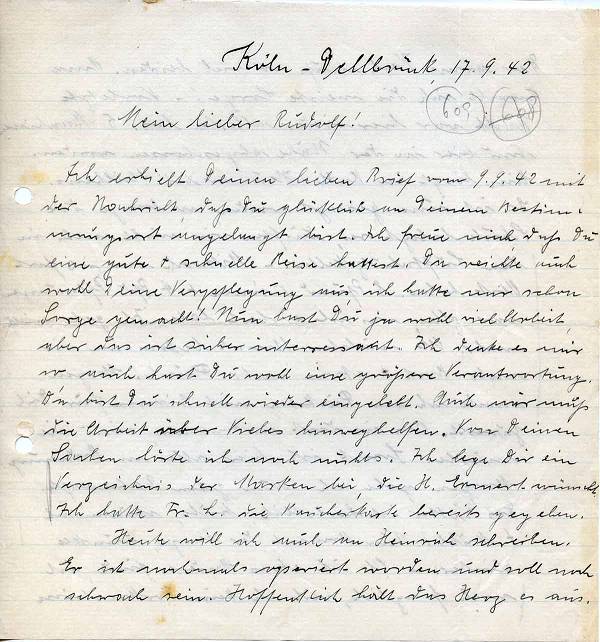 Köln-Dellbrück, 17.9.42
609. 608
Mein lieber Rudolf!
Ich erhielt Deinen lieben Brief vom 9.9.42 mit
der Nachricht, daß Du glücklich an Deinem Bestim-
mungsort angelangt bist. Ich freue mich, daß Du
eine gute + schnelle Reise hattest. Da reichte auch
wohl Deine Verpflegung aus, ich hatte mir schon
Sorge gemacht! Nun hast Du ja wohl viel Arbeit,
aber das ist sicher interressant. Ich denke es mir
so, auch hast Du wohl eine größere Verantwortung.
Da bist Du schnell wieder eingelebt. Auch mir muß
die Arbeit über Vieles hinweghelfen. Von Deinen
Sachen löste ich noch nichts. Ich lege Dir ein
Verzeichnis der Marken bei, die H. Ermert wünscht.
Ich hatte Fr. L. die Raucherkarte bereits gegeben.
Heute will ich auch an Heinrich schreiben.
Er ist nochmals operiert worden und soll noch
schwach sein. Hoffentlich hält das Herz es aus.